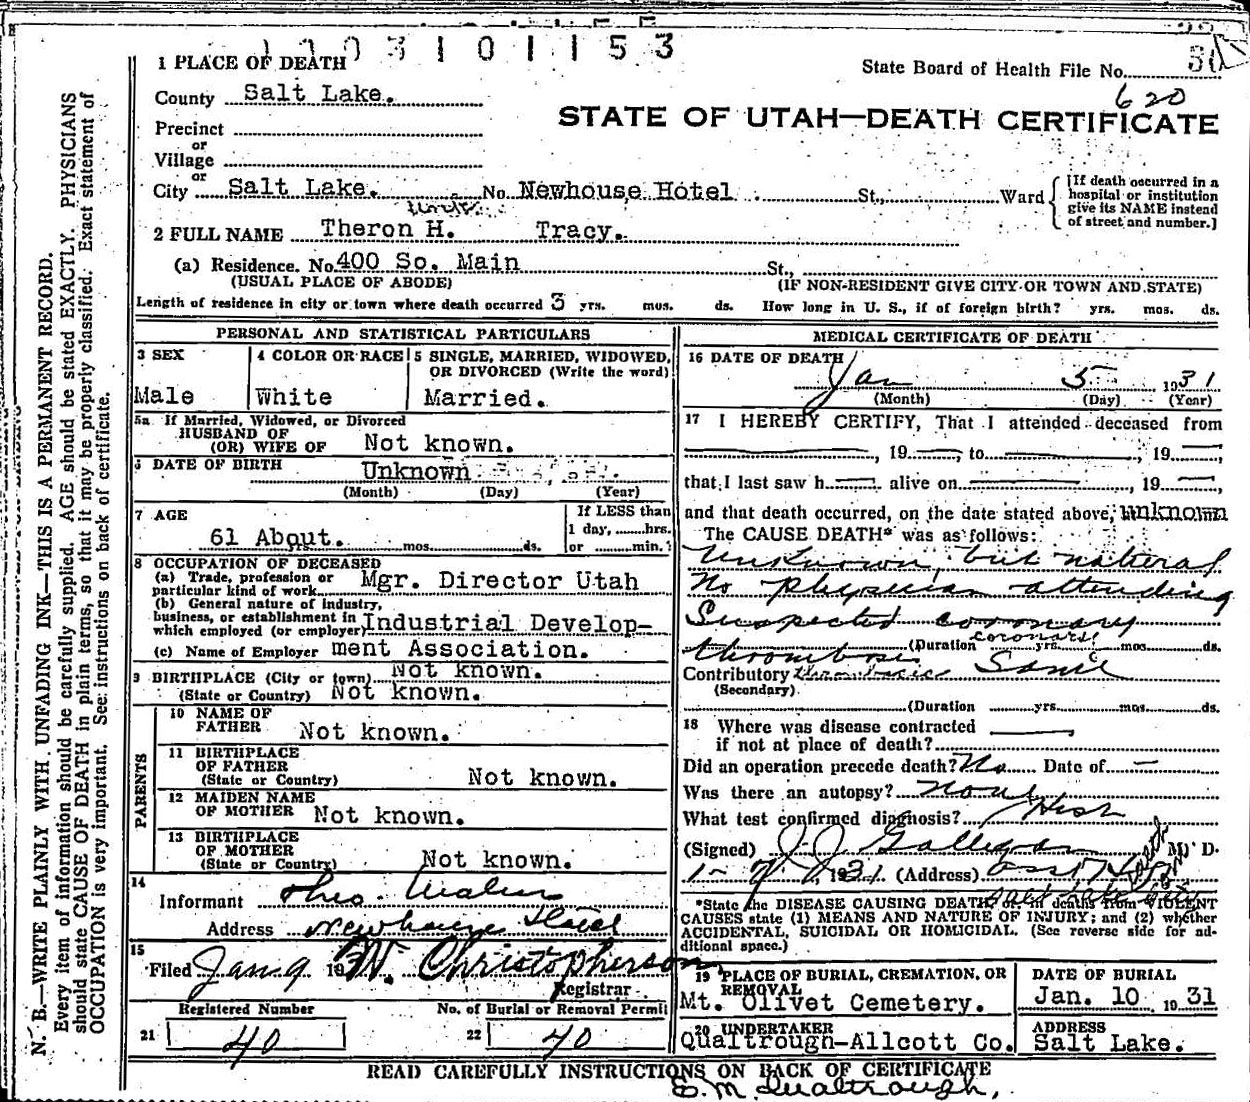 1003101153
1 PLACE OF DEATH
State Board of Health File No. 30
620
County Salt Lake.
STATE OF UTAH—DEATH CERTIFICATE
Precinct
or
Village
or
City Salt Lake. No. Newhouse Hotel St., Ward
[If death occurred in a
hospital or institution
give its NAME instead
of street and number.]
2 FULL NAME Theron H. Tracy.
(a) Residence. No. 400 So. Main St.,
(USUAL PLACE OF ABODE) (IF NON-RESIDENT GIVE CITY OR TOWN AND STATE)
Length of residence in city or town where death occurred 3 yrs. mos. ds. How long in U. S., if of foreign birth? yrs. mos. ds.
PERSONAL AND STATISTICAL PARTICULARS
3 SEX
Male
4 COLOR OR RACE
White
5 SINGLE, MARRIED, WIDOWED,
OR DIVORCED (Write the word)
Married.
5a If Married, Widowed, or Divorced
HUSBAND OF
(OR) WIFE OF Not known.
6 DATE OF BIRTH Unknown
(Month) (Day) (Year)
7 AGE
61 About. yrs. mos. ds.
If LESS than
1 day, hrs.
or min.
8 OCCUPATION OF DECEASED
(a) Trade, profession or
particular kind of work Mgr. Director Utah
(b) General nature of industry,
business, or establishment in
which employed (or employer) Industrial Develop-
(c) Name of Employer ment Association.
9 BIRTHPLACE (City or town) Not known.
(State or Country) Not known.
PARENTS
10 NAME OF
FATHER Not known.
11 BIRTHPLACE
OF FATHER
(State or Country) Not known.
12 MAIDEN NAME
OF MOTHER Not known.
13 BIRTHPLACE
OF MOTHER
(State or Country) Not known.
14
Informant Theo.
Address Newhouse Hotel
15
Filed Jan 9 1931 W. Christopherson
Registrar
Registered Number
21 40
No. of Burial or Removal Permit
22 40
MEDICAL CERTIFICATE OF DEATH
16 DATE OF DEATH
Jan 5 1931
(Month) (Day) (Year)
17 I HEREBY CERTIFY, That I attended deceased from
, 19 , to , 19 ,
that I last saw h alive on , 19 ,
and that death occurred, on the date stated above, unknown
The CAUSE DEATH* was as follows:
Unknown, but natural
No physician attending
Suspected coronary
thrombosis
coronary
(Duration yrs. mos. ds.
Contributory thrombosis Same
(Secondary)
(Duration yrs. mos. ds.
18 Where was disease contracted
if not at place of death?
Did an operation precede death? No Date of —
Was there an autopsy? None
What test confirmed diagnosis? Hist
(Signed) J. J. Galligan M. D.
1- 1931 (Address)
*State the DISEASE CAUSING DEATH, deaths from VIOLENT
CAUSES state (1) MEANS AND NATURE OF INJURY; and (2) whether
ACCIDENTAL, SUICIDAL OR HOMICIDAL. (See reverse side for ad-
ditional space.)
19 PLACE OF BURIAL, CREMATION, OR
REMOVAL
Mt. Olivet Cemetery.
DATE OF BURIAL
Jan. 10 1931
20 UNDERTAKER
Qualtrough-Allcott Co.
ADDRESS
Salt Lake.
READ CAREFULLY INSTRUCTIONS ON BACK OF CERTIFICATE
E. M. Qualtrough,
N. B.—WRITE PLAINLY WITH UNFADING INK—THIS IS A PERMANENT RECORD.
Every item of information should be carefully supplied. AGE should be stated EXACTLY. PHYSICIANS
should state CAUSE OF DEATH in plain terms, so that it may be properly classified. Exact statement of
OCCUPATION is very important. See instructions on back of certificate.